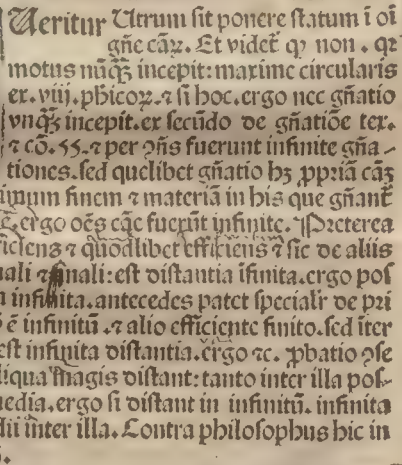 Ueritur Utrum sit ponere statum ĩ oĩ
gñe cãꝝ. Et videt᷑ ꝙ non. qꝛ
motus nũqꝫ incepit: maxime circularis
ex. viij. phicoꝝ. ⁊ si hoc. ergo nec gñatio
vnqꝫ incepit. ex secũdo de gñatiõe tex.
⁊ cõ. 55. ⁊ per ꝯñs fuerunt infinite gña-
tiones. sed quelibet gñatio hꝫ ꝓpriã cãꝫ
finem ⁊ materiã in his que gñant᷑
ergo oẽs cãe fuerũt infinite. Preterea
⁊ quodlibet efficiens ⁊ sic de aliis
⁊ finali: est distantia ĩfinita. ergo pos
infinita. antecedẽs patet specialr̃ de pri
ẽ infinitũ. ⁊ alio efficiente finito. sed ĩter
est infinita distantia. ergo ⁊c. ꝓbatio ꝯse
magis distant: tanto inter illa pos-
ergo si distant in infinitũ. infinita
inter illa. Contra philosophus hic in